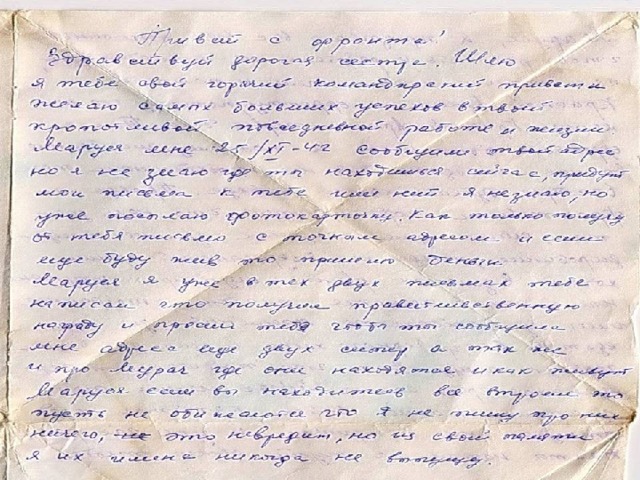 Привет с фронта!
Здравствуй дорогая сестра. Шлю
я тебе свой горячий командирский привет и
желаю самых больших успехов в твоей
кропотливой повседневной работе и жизни
Маруся мне 25/XI-42 сообщили твой адрес
но я не знаю где ты находишься сейчас, придут
мои письма к тебе или нет я не знаю, но
уже посылаю фотокарточку. Как только получу
от тебя письмо с точным адресом и если
еще буду жив то пришлю деньги
Маруся я уже в тех двух письмах тебе
написал что получил правительственную
награду и просил тебя чтобы ты сообщила
мне адреса еще двух сестер а так же
и про Мурач где они находятся и как живут
Маруся если вы находитесь все втроем то
пусть не обижаются что я не пишу про них
ничего, не это невредит, но из своей памяти
я их имена никогда не выпущу.